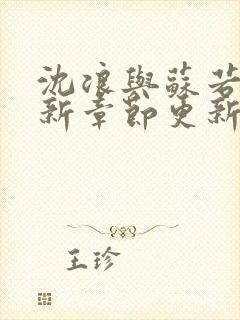 沈浪與蘇若
新章節更新
王珍